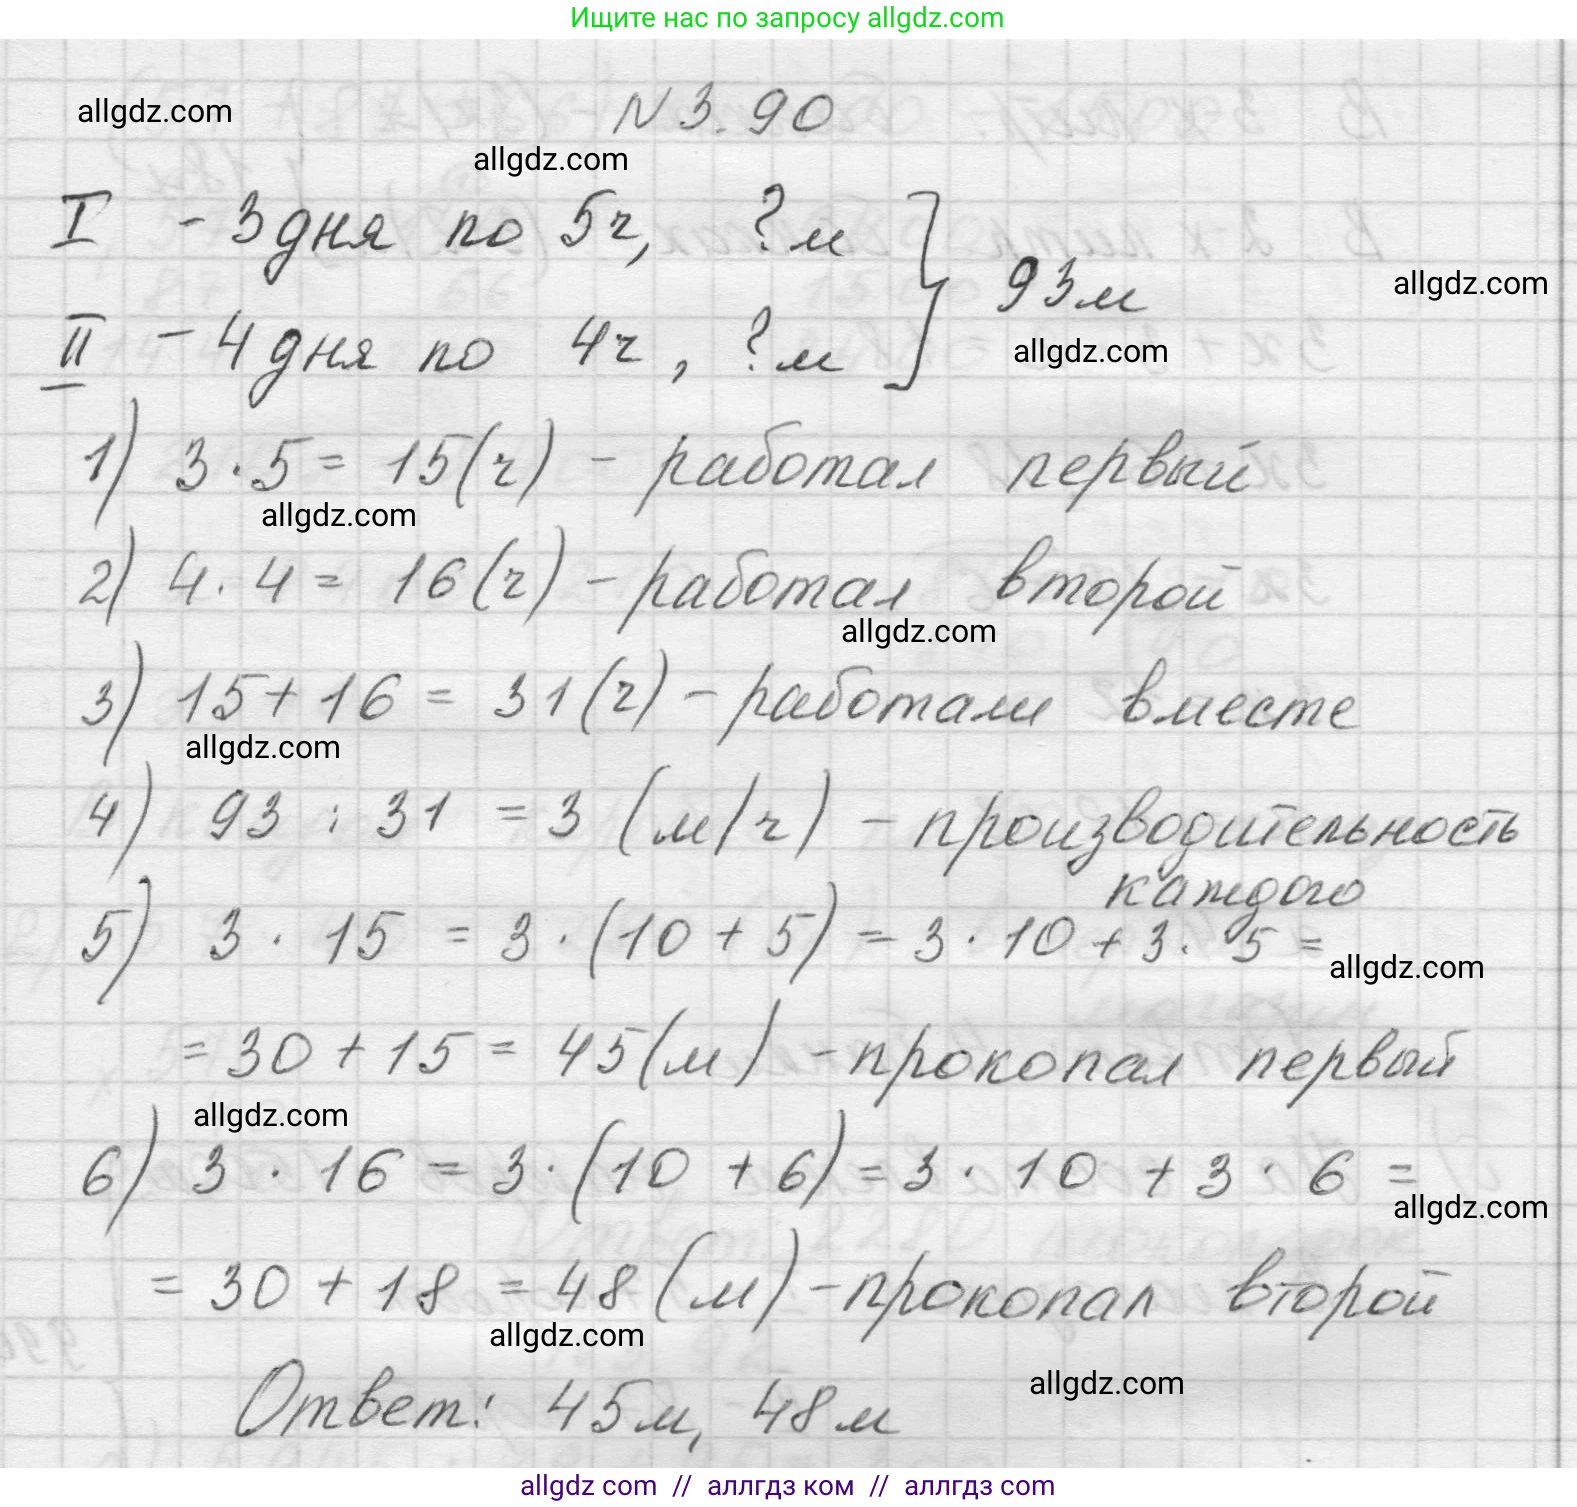 Ищите нас по запросу allgdz.com
allgdz.com
N 3.90
allgdz.com
I - 3 дня по 5ч, ? м
93м
allgdz.com
II - 4 дня по 4ч, ? м
allgdz.com
1) 3 · 5 = 15(ч) - работал первый
allgdz.com
2) 4 · 4 = 16(ч) - работал второй
allgdz.com
3) 15 + 16 = 31(ч) - работали вместе
allgdz.com
4) 93 : 31 = 3 (м/ч) - производительность
каждого
5) 3 · 15 = 3 · (10 + 5) = 3 · 10 + 3 · 5 =
allgdz.com
= 30 + 15 = 45(м) - прокопал первый
allgdz.com
6) 3 · 16 = 3 · (10 + 6) = 3 · 10 + 3 · 6 =
allgdz.com
= 30 + 18 = 48(м) - прокопал второй
allgdz.com
allgdz.com
Ответ: 45м, 48м
allgdz.com // аллгдз ком // аллгдз.com